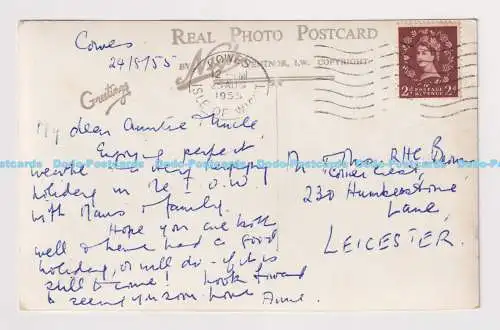 REAL PHOTO POSTCARD
BY Nigh VENTNOR, I.W. COPYRIGHT
Greetings
COWES
12 PM
25 AUG
1955
ISLE OF WIGHT
2d POSTAGE REVENUE 2d
Cowes
24/8/55
My dear Auntie & Uncle,
Enjoying perfect
weather & a very enjoyable
holiday in the I.O.W
with & family.
Hope you are both
well & have had a good
holiday, or will do - if it is
still to come! Look forward
to seeing you soon. Love
Anne.
RHC Brown
230 Humberstone
Lane,
LEICESTER.
Dodo-Postcards Dodo-Postcards Dodo-Postcards Dodo-Postcards